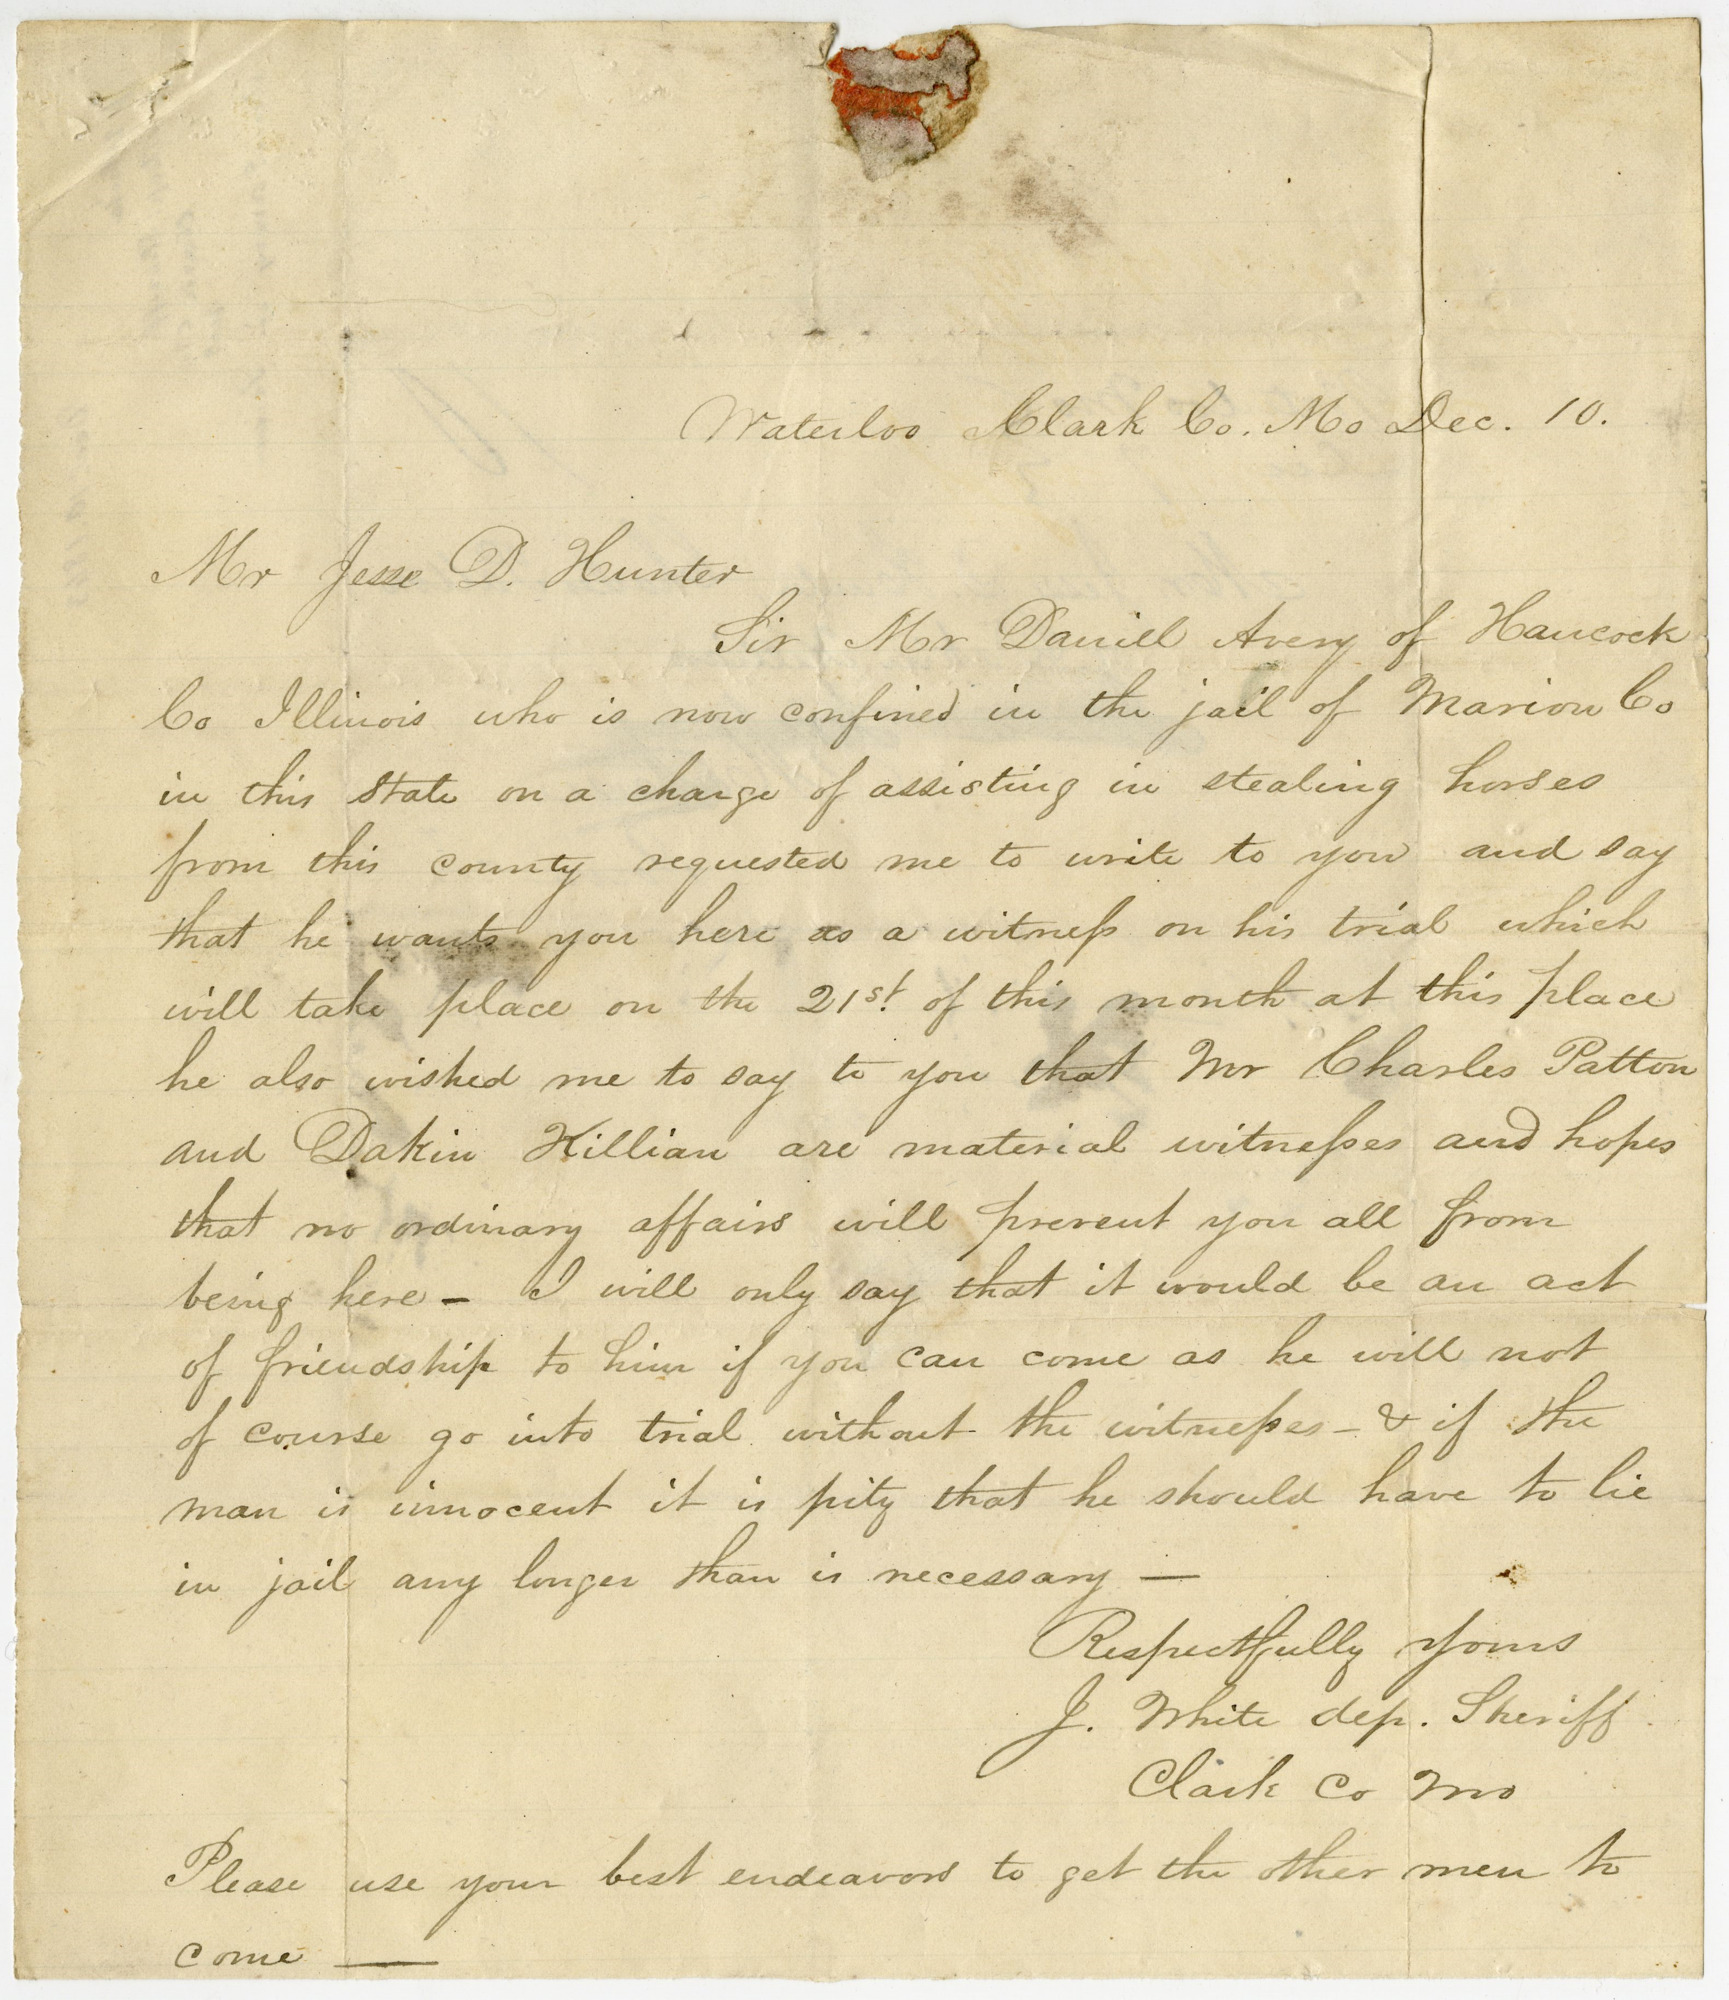 Waterloo Clark Co. Mo Dec. 10.
Mr Jesse D. Hunter
Sir Mr Daniel Avery of Hancock
Co Illinois who is now confined in the jail of Marion Co
in this State on a charge of assisting in stealing horses
from this county requested me to write to you and say
that he wants you here as a witness on his trial which
will take place on the 21st. of this month at this place
he also wished me to say to you that Mr Charles Patton
and Dakin Killian are material witnesses and hopes
that no ordinary affairs will prevent you all from
being here – I will only say that it would be an act
of friendship to him if you can come as he will not
of course go into trial without the witnesses – & if the
man is innocent it is pity that he should have to lie
in jail any longer than is necessary —
Respectfully yours
J. White dep. Sheriff
Clark Co Mo
Please use your best endeavors to get the other men to
come —